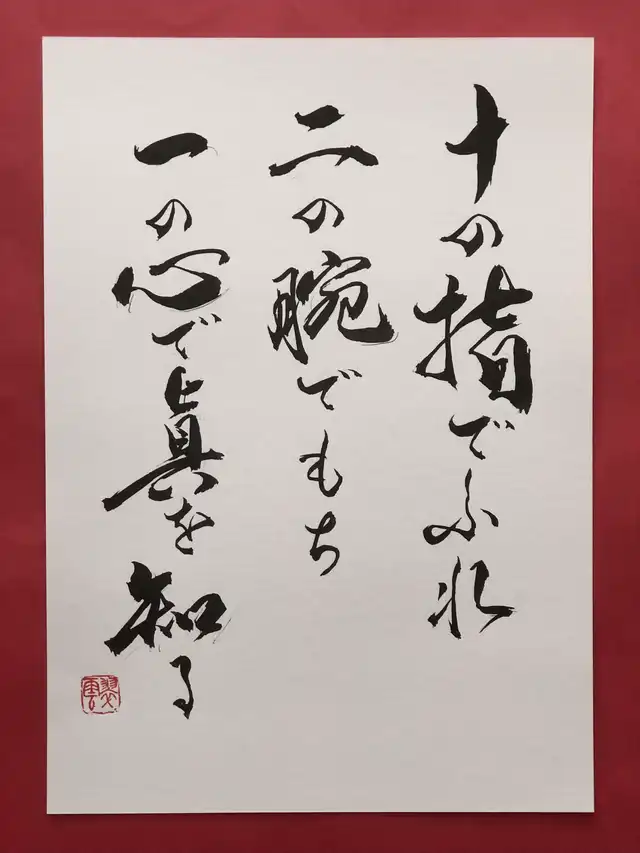 十の指でふれ
二の腕でもち
一の心で真を知る
翠雲